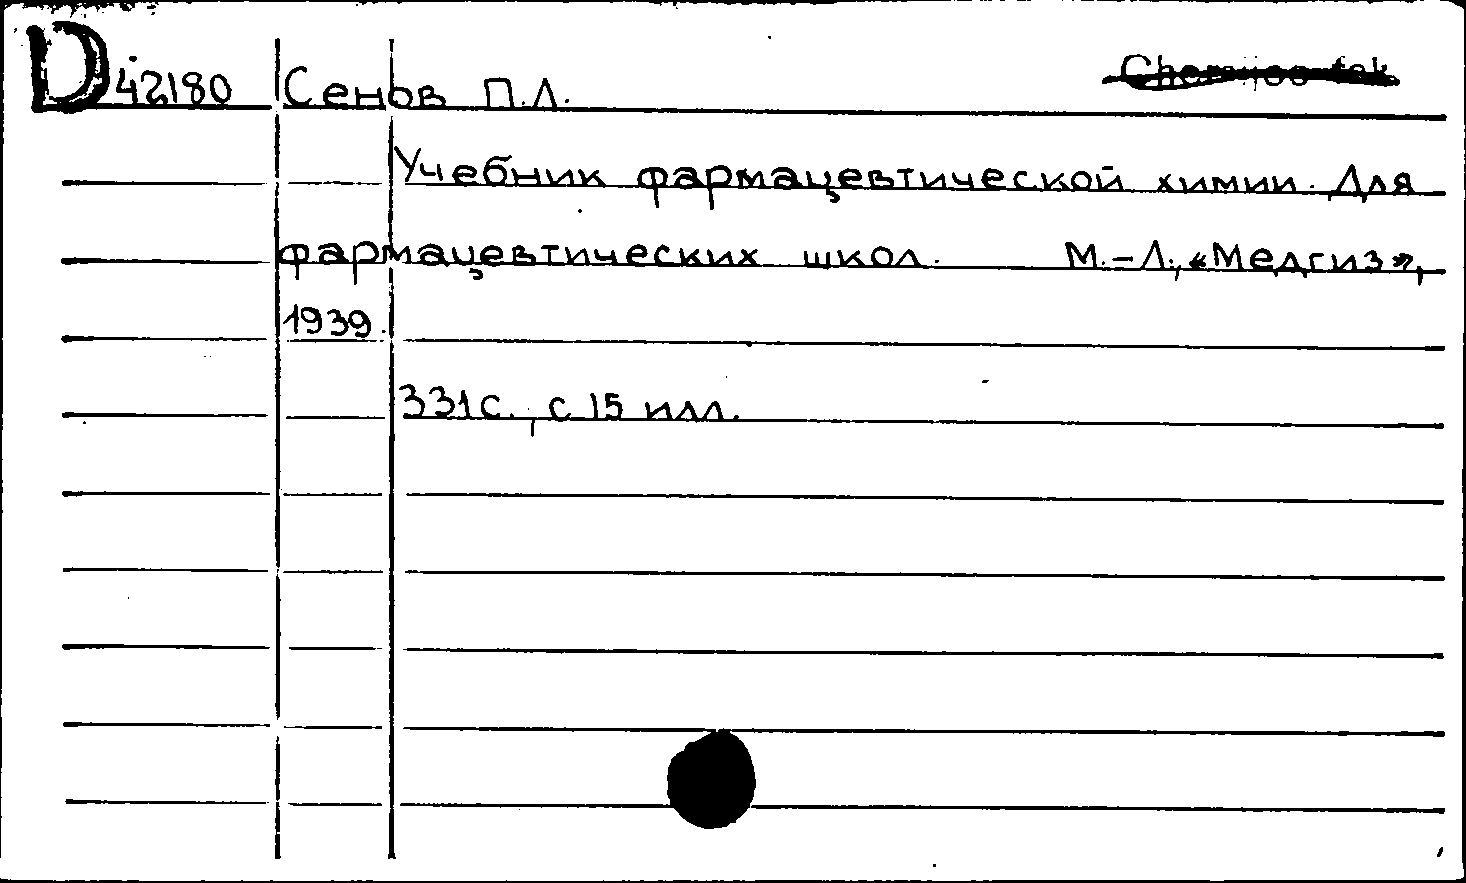 D 42180 Сенов П.Л.
Учебник фармацевтической химии. Для
фармацевтических школ. М.-Л., «Медгиз»,
1939.
331 с., с 15 илл.